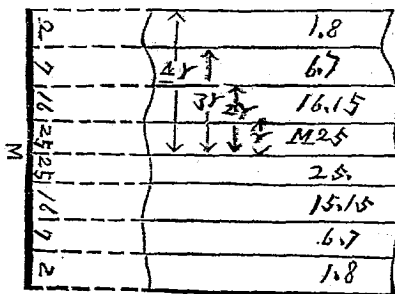 2 1.8
7 4r 6.7
16 3r 2r 16.15
25 r M25
M
25 25.
16 15.15
7 6.7
2 1.8